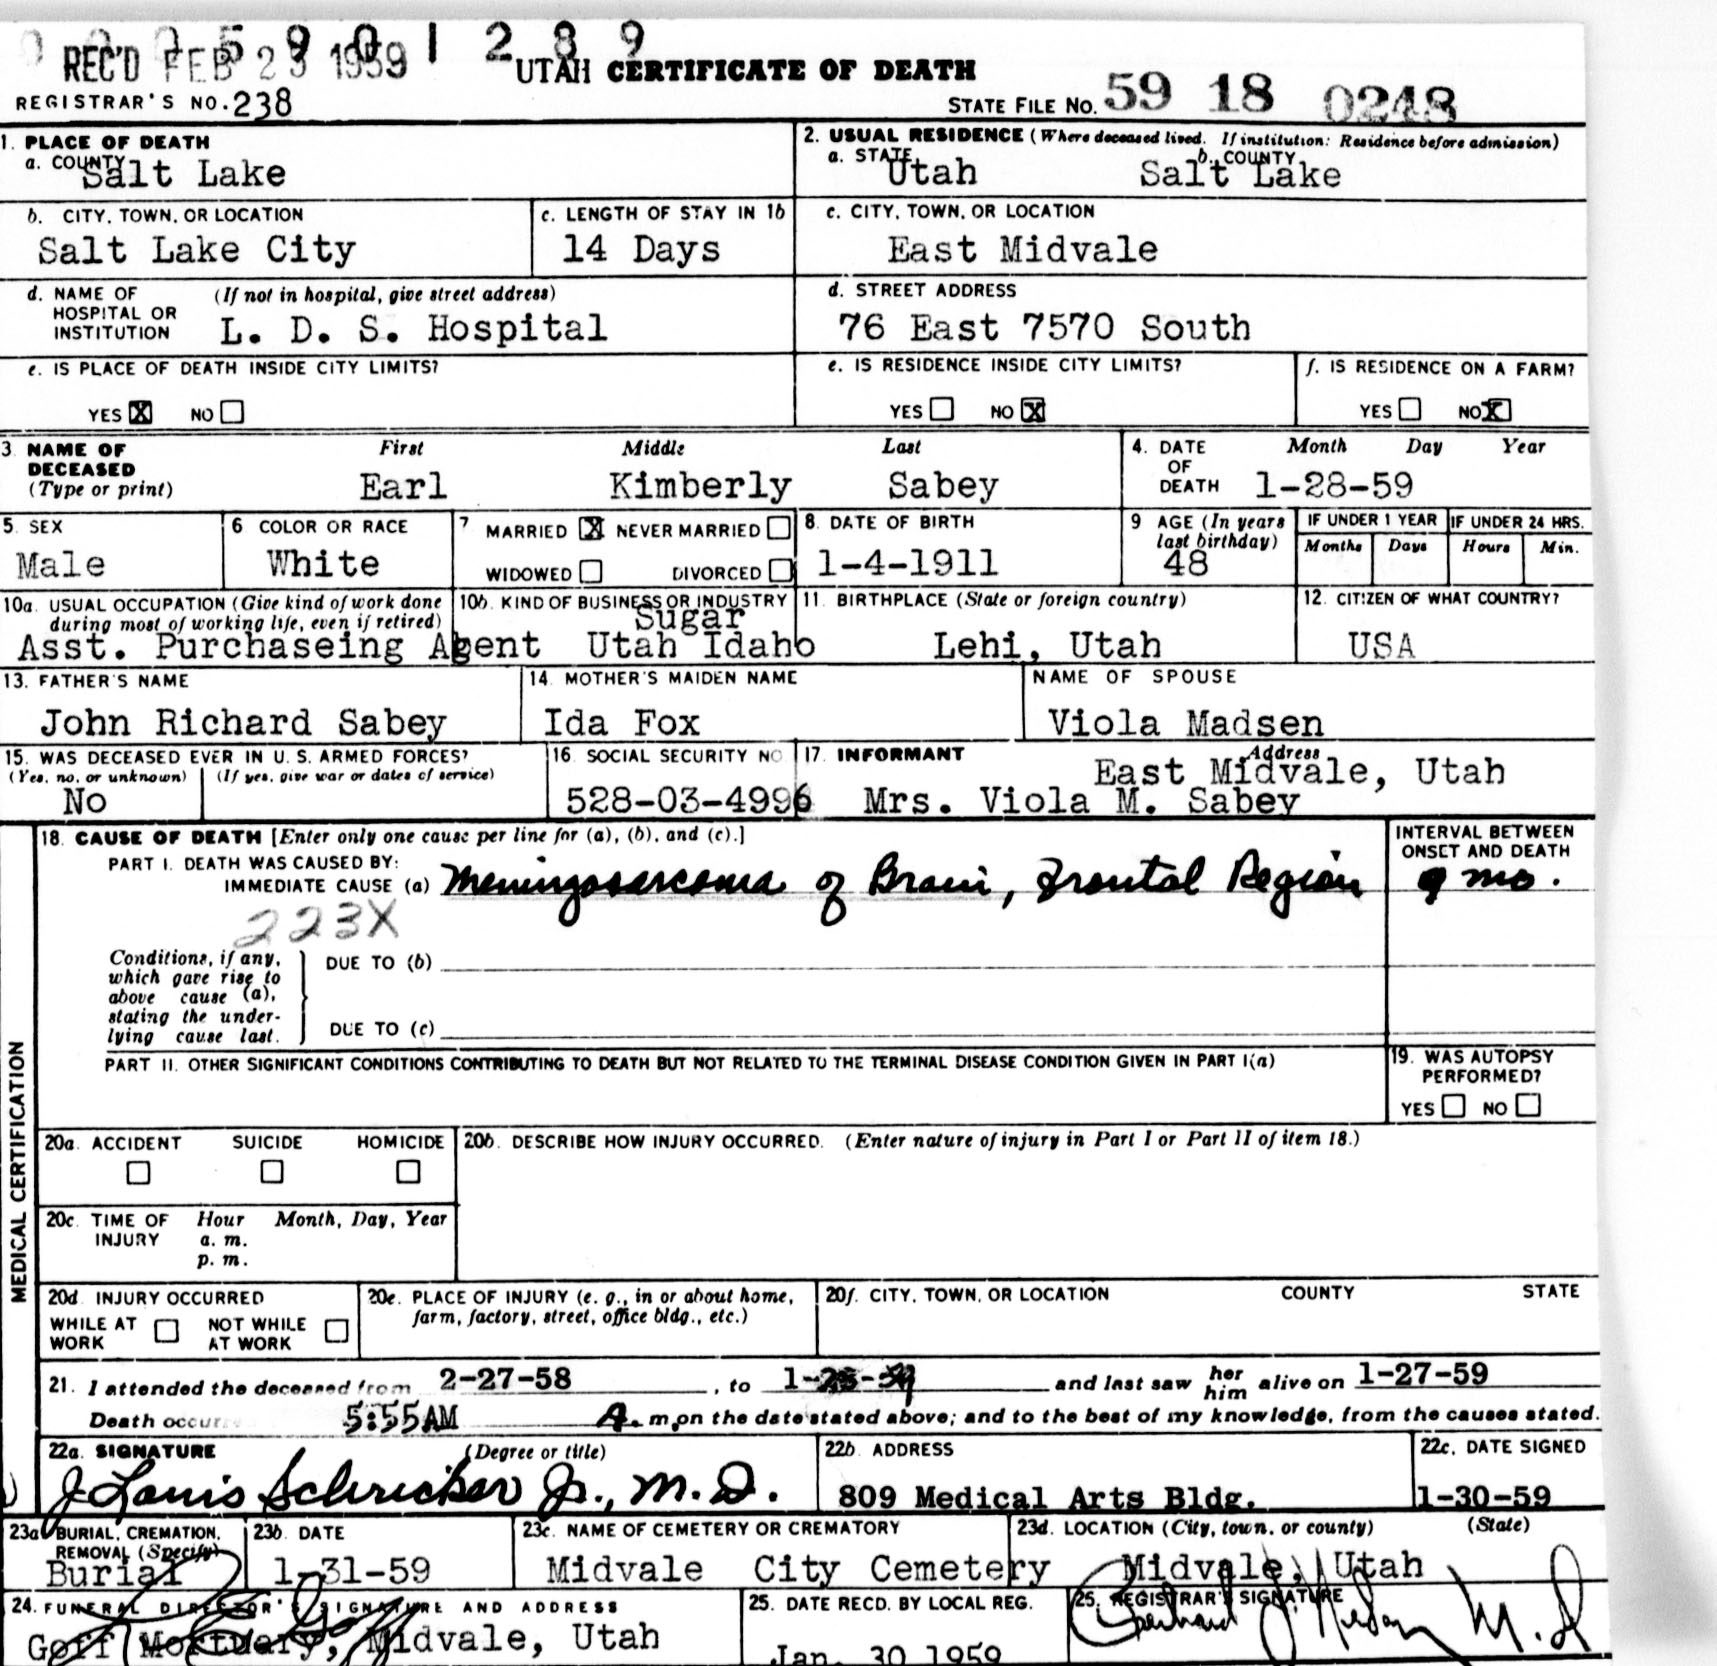 0 0 0 5 9 0 1 2 8 9
REC'D FEB 23 1959
UTAH CERTIFICATE OF DEATH
REGISTRAR'S NO. 238
STATE FILE NO. 59 18 0248
1. PLACE OF DEATH
a. COUNTY Salt Lake
2. USUAL RESIDENCE (Where deceased lived. If institution: Residence before admission)
a. STATE Utah b. COUNTY Salt Lake
b. CITY, TOWN, OR LOCATION
Salt Lake City
c. LENGTH OF STAY IN 1b
14 Days
c. CITY, TOWN, OR LOCATION
East Midvale
d. NAME OF HOSPITAL OR INSTITUTION (If not in hospital, give street address)
L. D. S. Hospital
d. STREET ADDRESS
76 East 7570 South
e. IS PLACE OF DEATH INSIDE CITY LIMITS?
YES X NO
e. IS RESIDENCE INSIDE CITY LIMITS?
YES NO X
f. IS RESIDENCE ON A FARM?
YES NO X
3. NAME OF DECEASED (Type or print)
First Middle Last
Earl Kimberly Sabey
4. DATE OF DEATH Month Day Year
1-28-59
5. SEX
Male
6. COLOR OR RACE
White
7. MARRIED X NEVER MARRIED
WIDOWED DIVORCED
8. DATE OF BIRTH
1-4-1911
9. AGE (In years last birthday)
48
IF UNDER 1 YEAR
Months Days
IF UNDER 24 HRS.
Hours Min.
10a. USUAL OCCUPATION (Give kind of work done during most of working life, even if retired)
Asst. Purchaseing Agent
10b. KIND OF BUSINESS OR INDUSTRY
Sugar
Utah Idaho
11. BIRTHPLACE (State or foreign country)
Lehi, Utah
12. CITIZEN OF WHAT COUNTRY?
USA
13. FATHER'S NAME
John Richard Sabey
14. MOTHER'S MAIDEN NAME
Ida Fox
NAME OF SPOUSE
Viola Madsen
15. WAS DECEASED EVER IN U. S. ARMED FORCES?
(Yes, no, or unknown) (If yes, give war or dates of service)
No
16. SOCIAL SECURITY NO.
528-03-4996
17. INFORMANT Address
East Midvale, Utah
Mrs. Viola M. Sabey
MEDICAL CERTIFICATION
18. CAUSE OF DEATH [Enter only one cause per line for (a), (b), and (c).]
PART I. DEATH WAS CAUSED BY:
IMMEDIATE CAUSE (a) Meningosarcoma of Brain, Frontal Region
INTERVAL BETWEEN ONSET AND DEATH
9 mo.
223X
Conditions, if any, which gave rise to above cause (a), stating the underlying cause last.
DUE TO (b)
DUE TO (c)
PART II. OTHER SIGNIFICANT CONDITIONS CONTRIBUTING TO DEATH BUT NOT RELATED TO THE TERMINAL DISEASE CONDITION GIVEN IN PART I(a)
19. WAS AUTOPSY PERFORMED?
YES NO
20a. ACCIDENT SUICIDE HOMICIDE
20b. DESCRIBE HOW INJURY OCCURRED. (Enter nature of injury in Part I or Part II of item 18.)
20c. TIME OF INJURY Hour Month, Day, Year
a. m.
p. m.
20d. INJURY OCCURRED
WHILE AT WORK NOT WHILE AT WORK
20e. PLACE OF INJURY (e. g., in or about home, farm, factory, street, office bldg., etc.)
20f. CITY, TOWN, OR LOCATION COUNTY STATE
21. I attended the deceased from 2-27-58, to 1-28-59 and last saw her him alive on 1-27-59
Death occur 5:55AM A. m, on the date stated above; and to the best of my knowledge, from the causes stated.
22a. SIGNATURE (Degree or title)
J Louis Schricker Jr., M.D.
22b. ADDRESS
809 Medical Arts Bldg.
22c. DATE SIGNED
1-30-59
23a. BURIAL, CREMATION, REMOVAL (Specify)
Burial
23b. DATE
1-31-59
23c. NAME OF CEMETERY OR CREMATORY
Midvale City Cemetery
23d. LOCATION (City, town, or county) (State)
Midvale, Utah
24. FUNERAL DIRECTOR'S SIGNATURE AND ADDRESS
Goff Mortuary, Midvale, Utah
25. DATE RECD. BY LOCAL REG.
Jan. 30 1959
26. REGISTRAR'S SIGNATURE
M.D